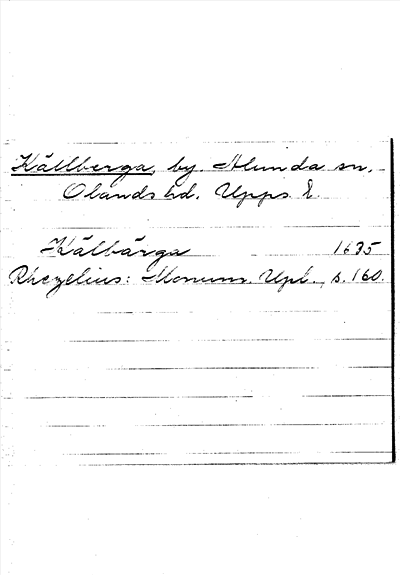 Källberga, by. Alunda sn.
Olands hd. Upps. l.
Källbärga 1635
Rhezelius: Monum. Upl., s. 160.